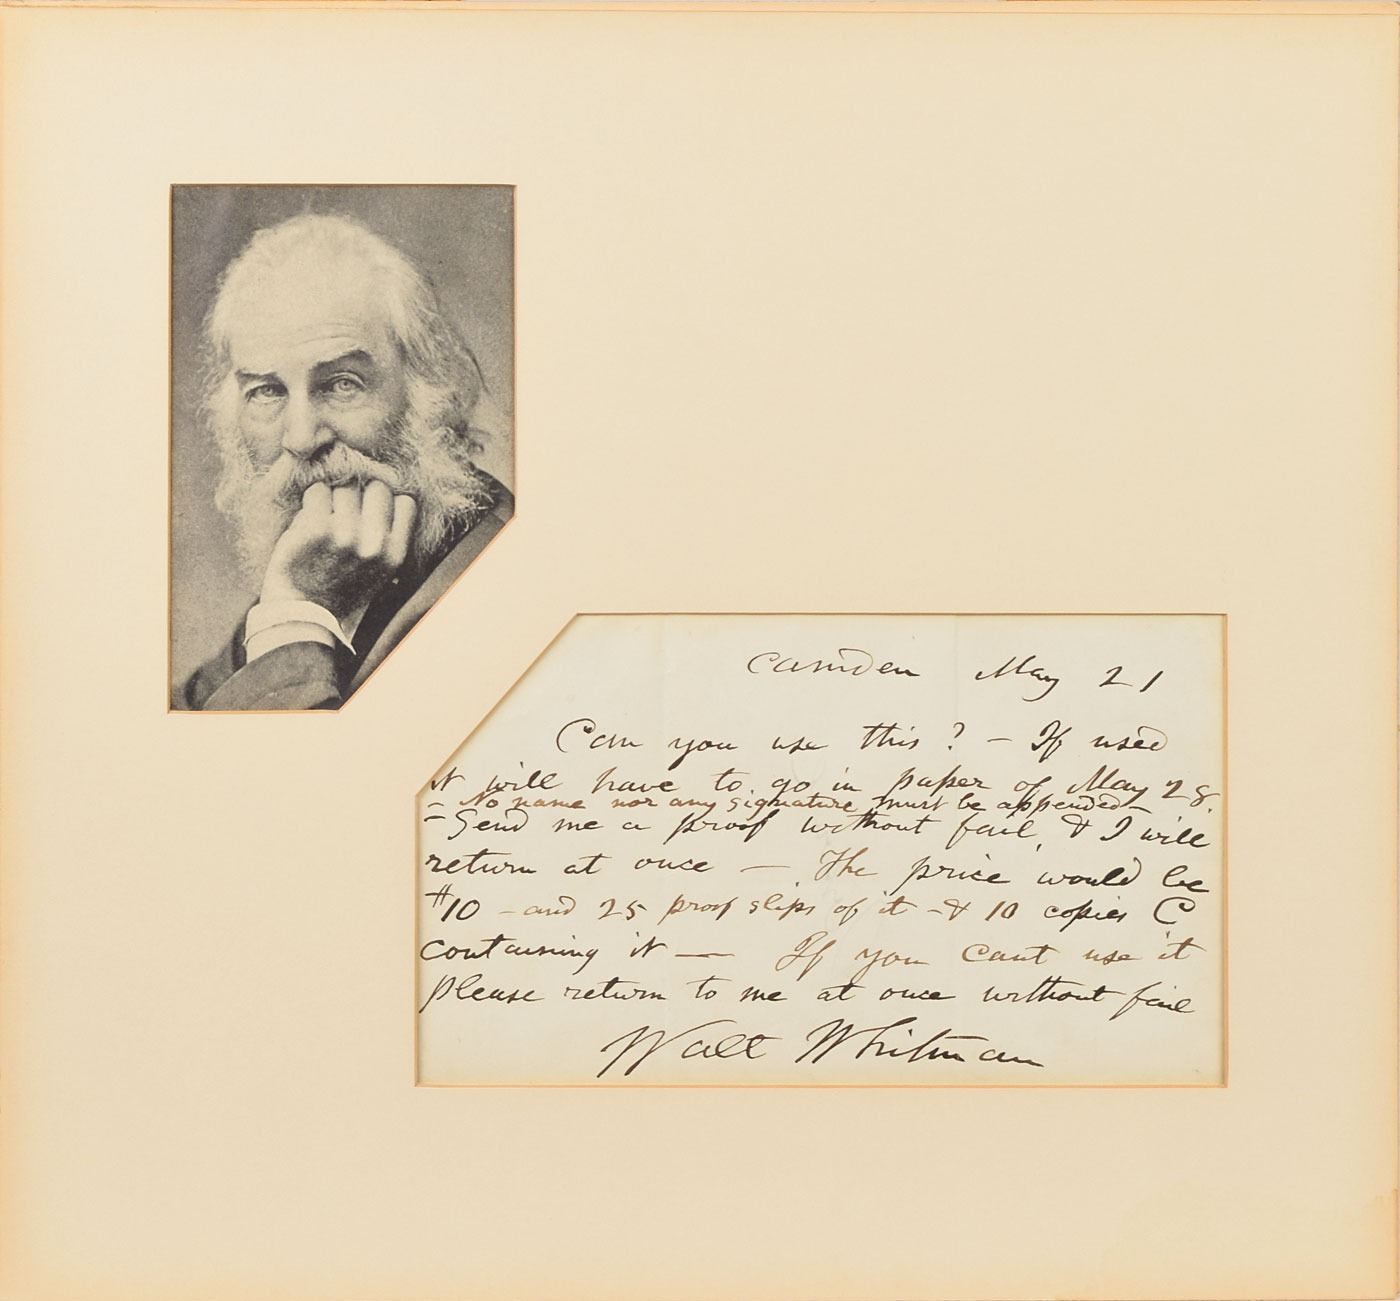 Camden May 21
Can you use this? – If used
it will have to go in paper of May 28.
– No name nor any signature must be appended –
– Send me a proof without fail, & I will
return at once — The price would be
$10 – and 25 proof slips of it – & 10 copies C
containing it — If you cant use it
please return to me at once without fail
Walt Whitman